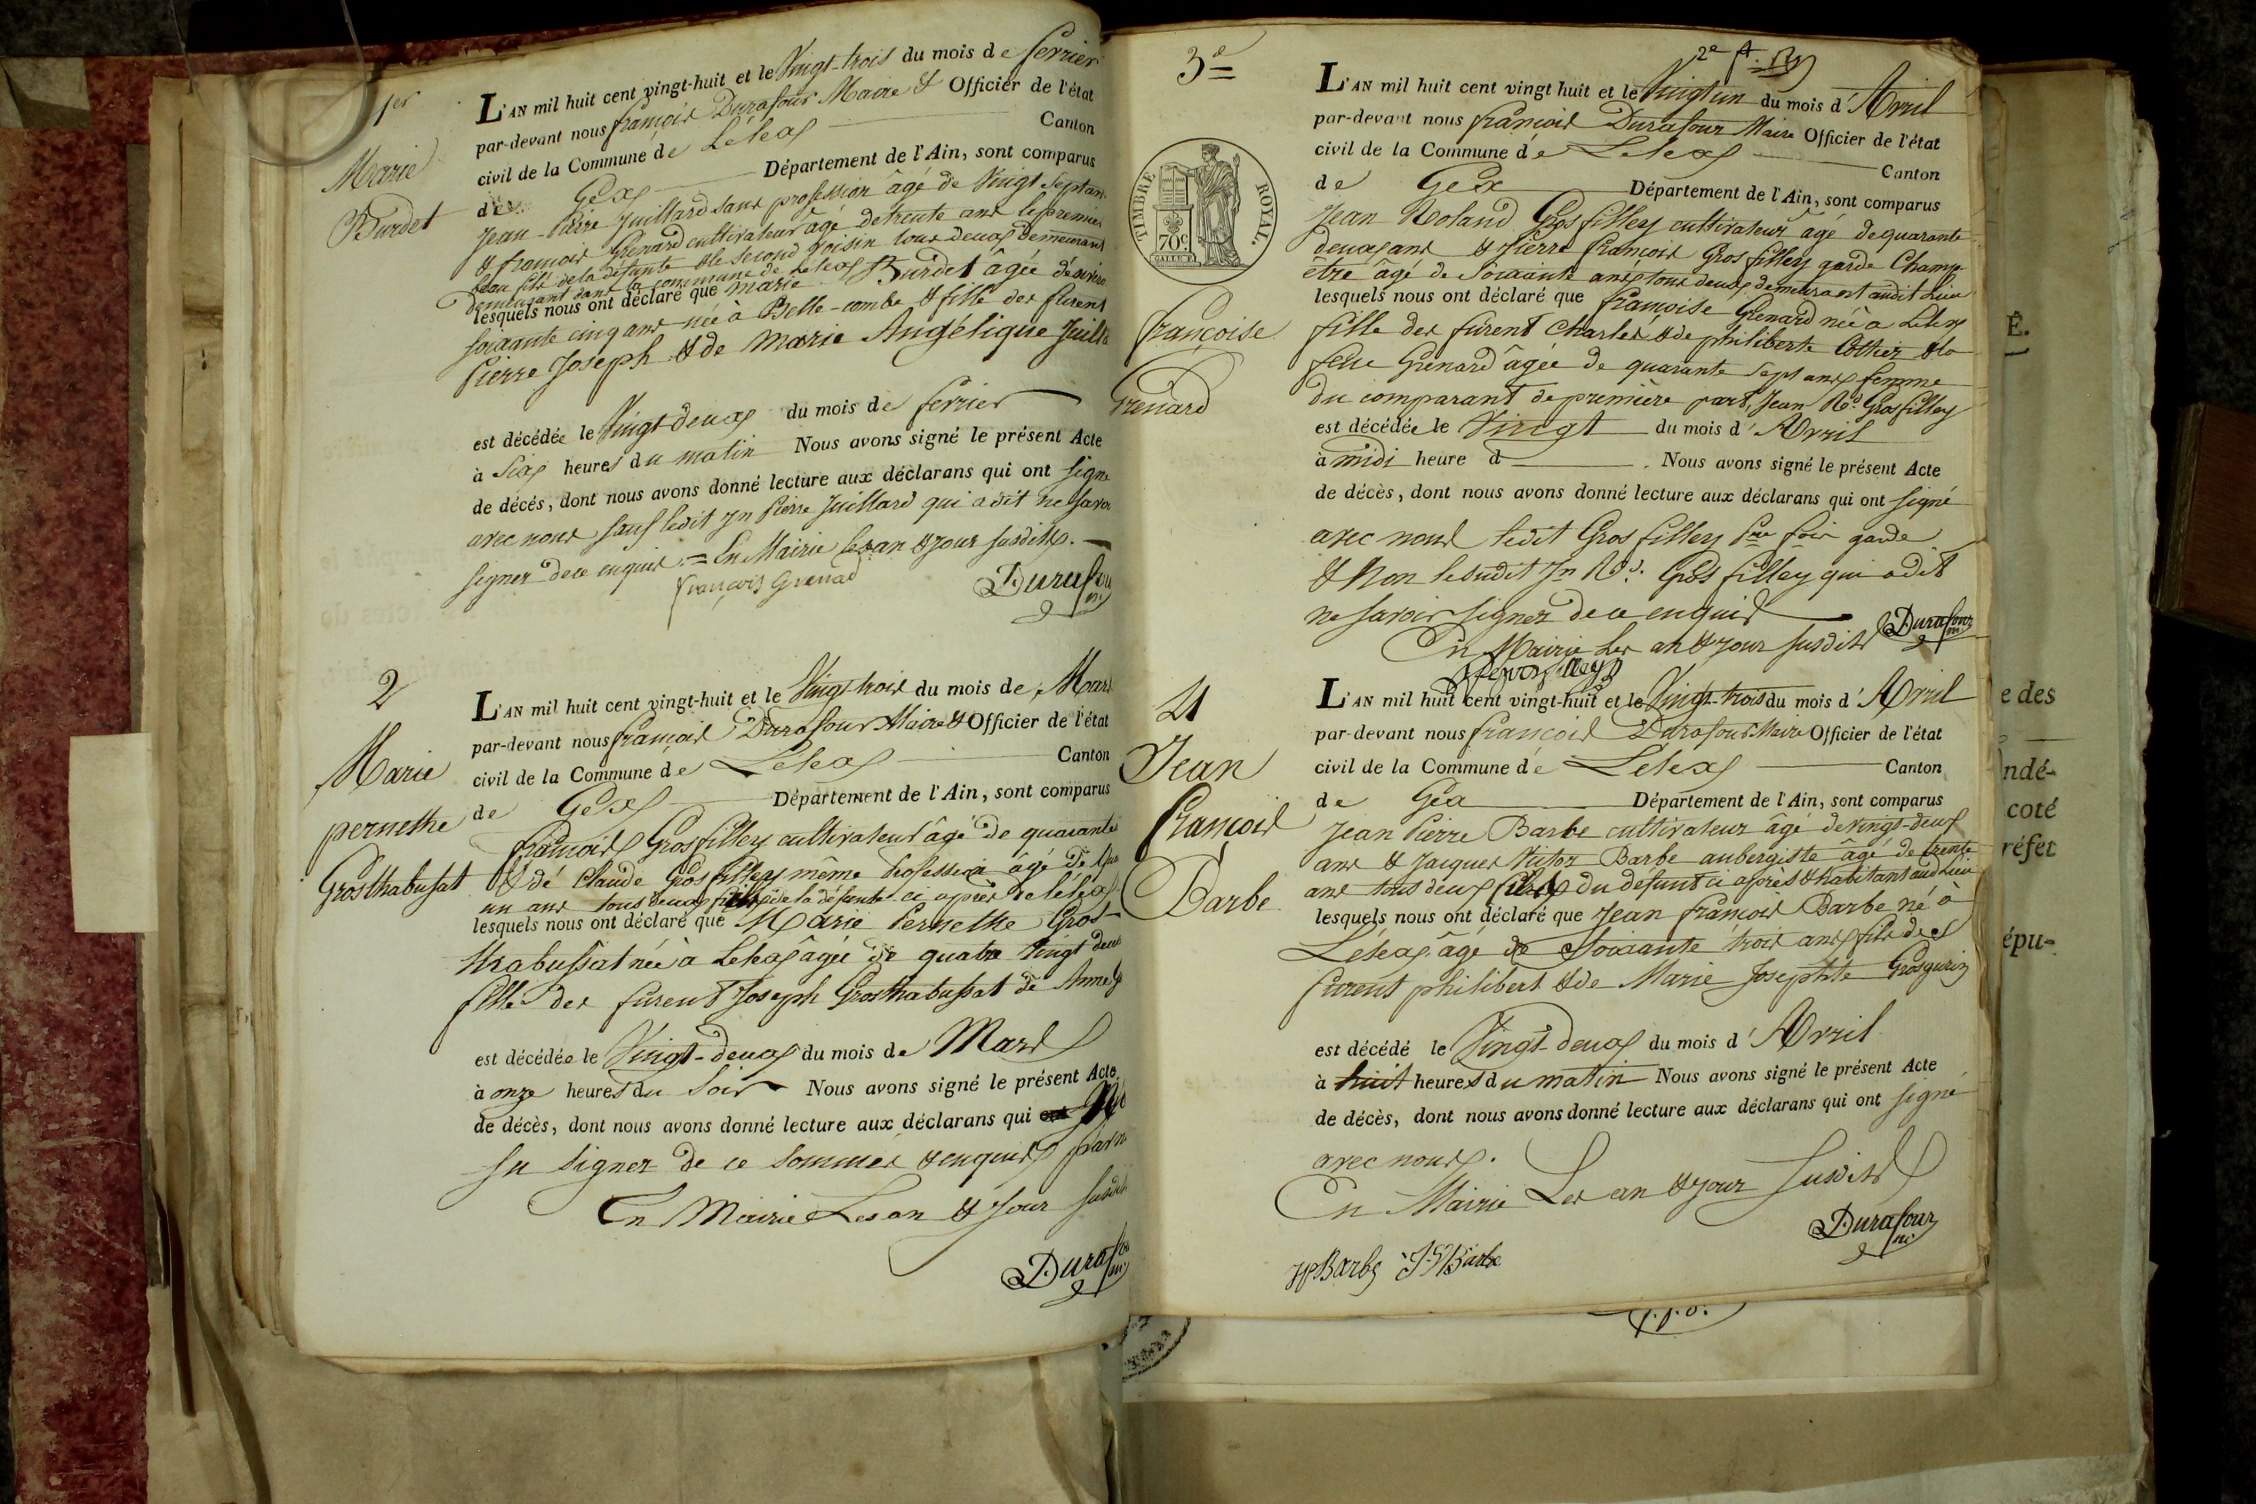 1er
Marie
Burdet
L'AN mil huit cent vingt-huit et le Vingt-trois du mois de ferrier
par-devant nous françois Durafour Maire & Officier de l'état
civil de la Commune de Lélex Canton
de Gex Département de l'Ain, sont comparus
Jean-Pière Juillard sans profession âgé de Vingt septans
& françois Grenard cultivateur âgé de trente ans le premier
beau fils de la défunte & le second voisin tous deux demeurant
demeurant dans la commune de Lelex
lesquels nous ont déclaré que marie Burdet âgée d'environ
soixante cinq ans née à Belle-combe & fille des furent
Pierre Joseph & de marie Angélique Juill
est décédée le Vingt-deux du mois de ferrier
à Six heures du matin Nous avons signé le présent Acte
de décés, dont nous avons donné lecture aux déclarans qui ont signé
avec nous sauf ledit Jn Pierre Juillard qui a dit ne savo
signer de ce enquis = En Mairie les an & jour susdits.
françois Grenad
Durafou
2
Marie
pernethe
Grosthabussat
L'AN mil huit cent vingt-huit et le Vingt trois du mois de Mars
par-devant nous françois Durafour Maire & Officier de l'état
civil de la Commune de Lelex Canton
de Gex Département de l'Ain, sont comparus
françois Grosfilley cultivateur âgé de quarante
& de Claude Grosfilley même profession âgé de
un ans tous deux fils de la défunte ci après de lelex
lesquels nous ont déclaré que Marie Pernethe Gros-
thabussat née à Lelex âgée de quatre Vingt deux
fille des furent Joseph Grosthabussat de Anne
est décédée le Vingt-deux du mois de Mars
à onze heures du Soir Nous avons signé le présent Acte
de décès, dont nous avons donné lecture aux déclarans qui ont
su signer de ce sommés & enquis
En Mairie Les an & Jour susdits
Durafou
3e
2e f.
TIMBRE ROYAL.
70c
françoise
Grenard
L'AN mil huit cent vingt huit et le Vingt un du mois d'Avril
par-devant nous françois Durafour Maire Officier de l'état
civil de la Commune de Lelex Canton
de Gex Département de l'Ain, sont comparus
Jean Roland Grosfilley cultivateur âgé de quarante
deux ans & Pierre françois Grosfilley garde Champ
être âgé de Soixante ans tous deux demeurant audit Lieu
lesquels nous ont déclaré que françoise Grenard née a Lelex
fille des furent Charles & de philiberte Cothier & la
feue Grenard âgée de quarante Sept ans femme
du comparant de première part, Jean Rd Grosfilley
est décédée le Vingt du mois d'Avril
à midi heure d Nous avons signé le présent Acte
de décès, dont nous avons donné lecture aux déclarans qui ont signé
avec nous ledit Grosfilley Pre fois garde
& Non le sudit Jn Rd. Gros filley qui a dit
ne savoir signer de ce enquis
En Mairie Les an & jour susdits
Durafour
4
Jean
françois
Barbe
L'AN mil huit cent vingt-huit et le Vingt-trois du mois d'Avril
par-devant nous françois Durafour Maire Officier de l'état
civil de la Commune de Lelex Canton
de Gex Département de l'Ain, sont comparus
Jean Pierre Barbe cultivateur âgé de vingt-deux
ans & Jacques Victor Barbe aubergiste âgé de trente
ans tous deux fils du défunt ci après & habitant aud Lieu
lesquels nous ont déclaré que Jean françois Barbe né à
Lélex âgé de Soixante trois ans fils des
furent philibert & de Marie Josephte Grosgurin
est décédé le Vingt-deux du mois d'Avril
à huit heures du matin Nous avons signé le présent Acte
de décès, dont nous avons donné lecture aux déclarans qui ont signé
avec nous.
En Mairie Les an & jour susdits
Durafour
JPBarbe JVBarbe
É.
e des
ndé-
coté
réfet
épu-